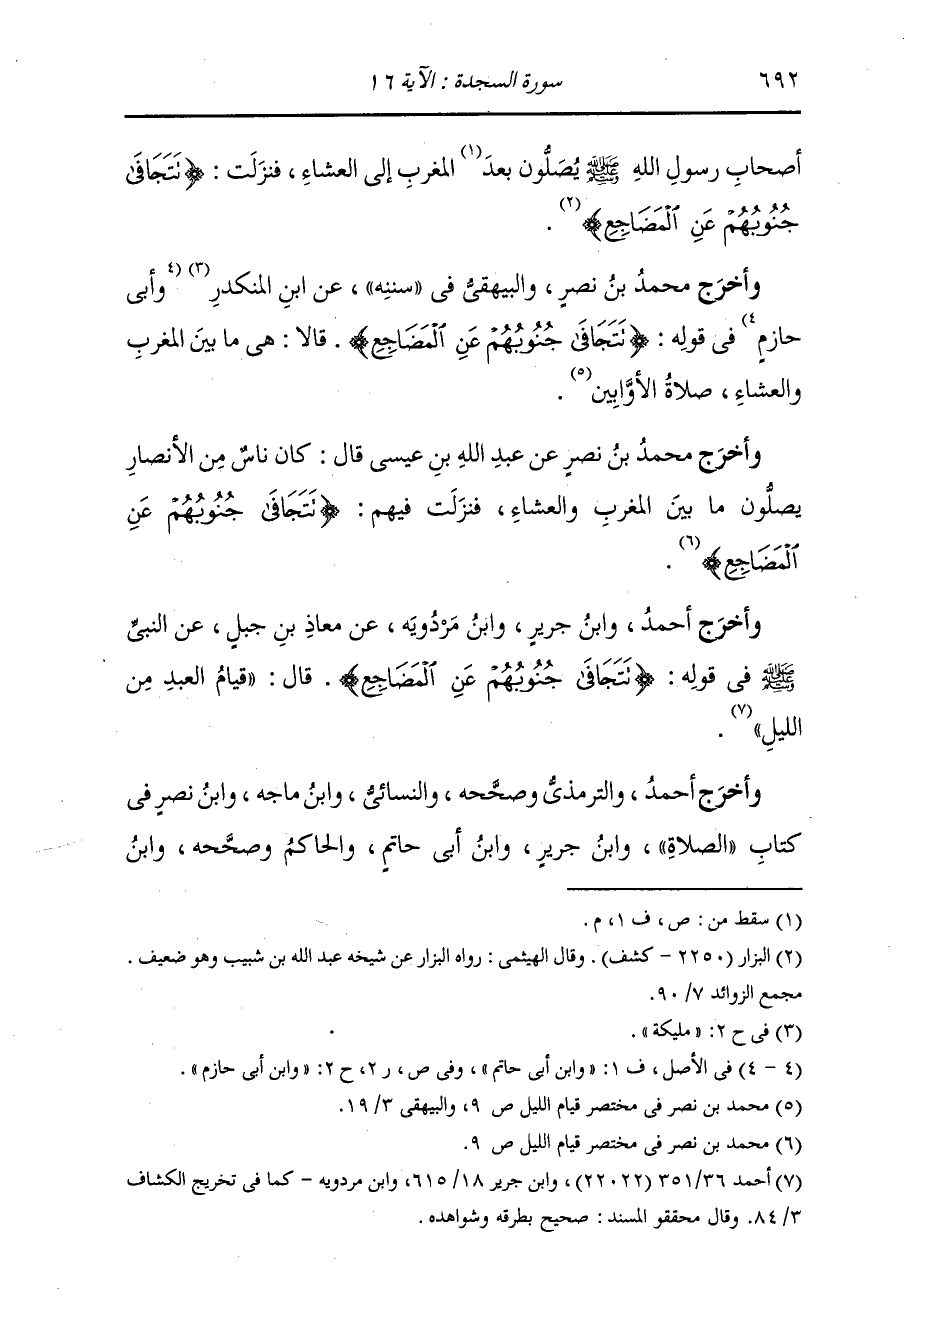 ٦٩٢ سورة السجدة : الآية ١٦
أصحابِ رسولِ اللهِ ﷺ يُصَلُّون بعدَ(١) المغربِ إلى العشاءِ ، فنزَلَت : ﴿نَتَجَافَىٰ
جُنُوبُهُمْ عَنِ ٱلْمَضَاجِعِ﴾(٢) .
وأخرَج محمدُ بنُ نصرٍ ، والبيهقىُّ فى «سننِه» ، عن ابنِ المنكدرِ(٣) (٤وأبى
حازمٍ٤) فى قولِه : ﴿نَتَجَافَىٰ جُنُوبُهُمْ عَنِ ٱلْمَضَاجِعِ﴾ . قالا : هى ما بينَ المغربِ
والعشاءِ ، صلاةُ الأوَّابِين(٥) .
وأخرَج محمدُ بنُ نصرٍ عن عبدِ اللهِ بنِ عيسى قال : كان ناسٌ مِن الأنصارِ
يصلُّون ما بينَ المغربِ والعشاءِ ، فنزَلَت فيهم : ﴿نَتَجَافَىٰ جُنُوبُهُمْ عَنِ
ٱلْمَضَاجِعِ﴾(٦) .
وأخرَج أحمدُ ، وابنُ جريرٍ ، وابنُ مَرْدُويَه ، عن معاذِ بنِ جبلٍ ، عن النبىِّ
ﷺ فى قولِه : ﴿نَتَجَافَىٰ جُنُوبُهُمْ عَنِ ٱلْمَضَاجِعِ﴾ . قال : «قيامُ العبدِ مِن
الليلِ»(٧) .
وأخرَج أحمدُ ، والترمذىُّ وصحَّحه ، والنسائىُّ ، وابنُ ماجه ، وابنُ نصرٍ فى
كتابِ «الصلاةِ» ، وابنُ جريرٍ ، وابنُ أبى حاتمٍ ، والحاكمُ وصحَّحه ، وابنُ
(١) سقط من : ص ، ف ١، م .
(٢) البزار (٢٢٥٠ - كشف) . وقال الهيثمى : رواه البزار عن شيخه عبد الله بن شبيب وهو ضعيف .
مجمع الزوائد ٧/ ٩٠.
(٣) فى ح ٢: «مليكة» .
(٤ - ٤) فى الأصل ، ف ١: «وابن أبى حاتم» ، وفى ص ، ر ٢، ح ٢: «وابن أبى حازم» .
(٥) محمد بن نصر فى مختصر قيام الليل ص ٩، والبيهقى ٣/ ١٩.
(٦) محمد بن نصر فى مختصر قيام الليل ص ٩.
(٧) أحمد ٣٥١/٣٦ (٢٢٠٢٢) ، وابن جرير ١٨/ ٦١٥، وابن مردويه - كما فى تخريج الكشاف
٣/ ٨٤. وقال محققو المسند : صحيح بطرقه وشواهده .